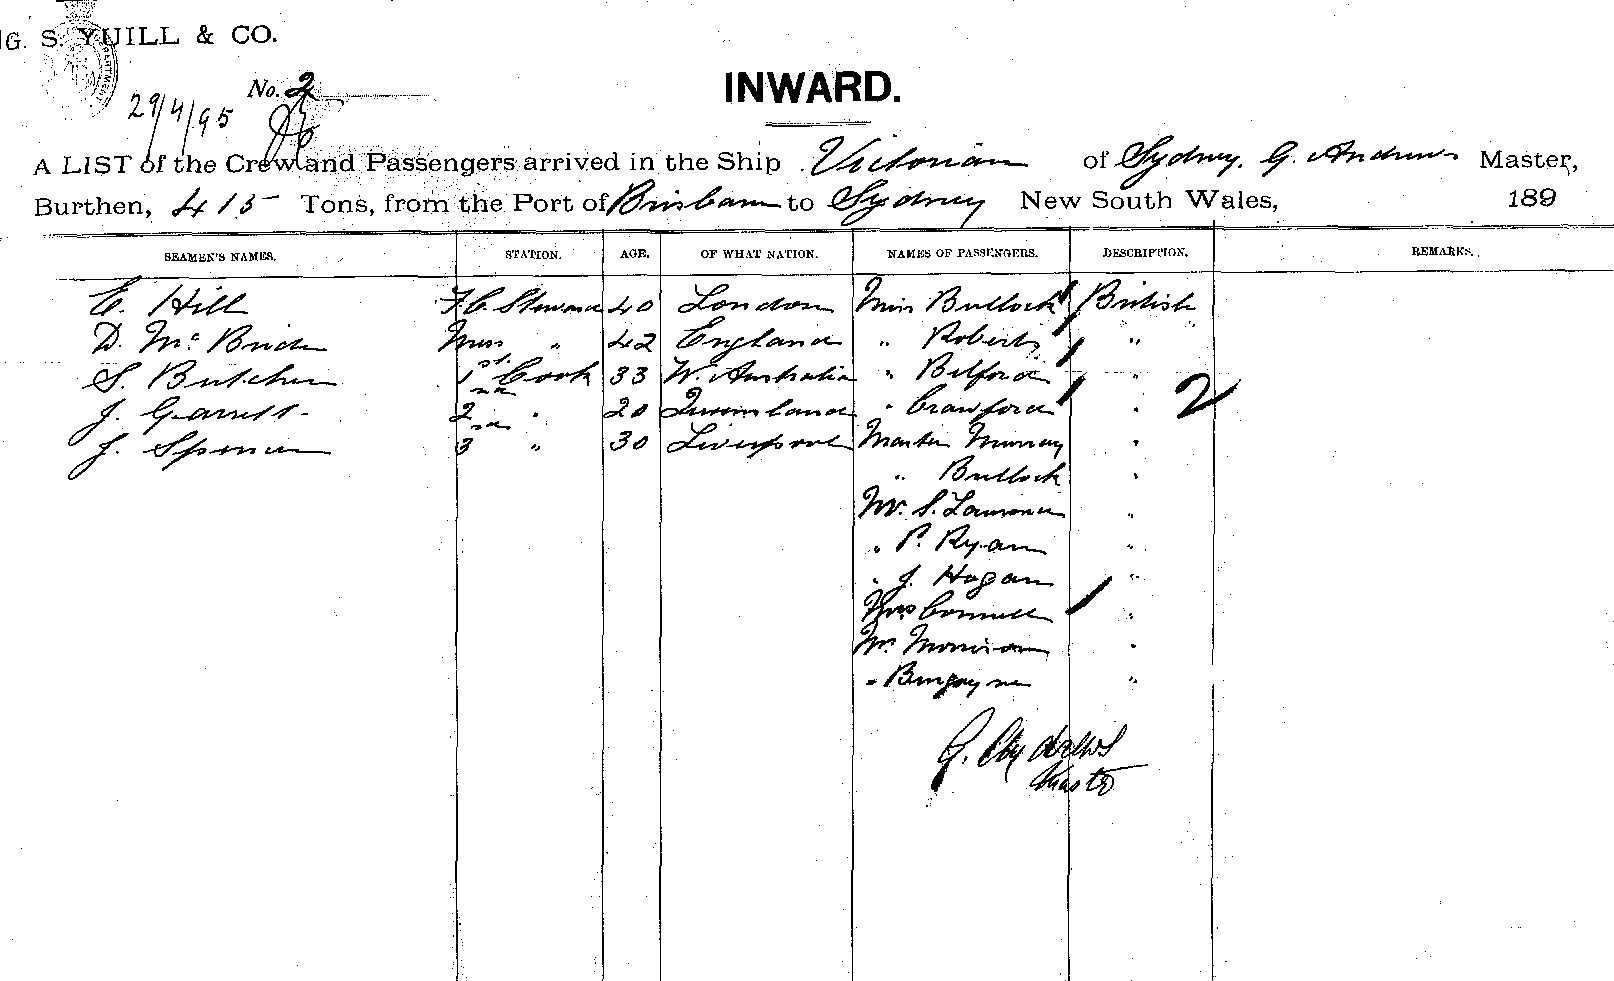 G. S. YUILL & CO.
INWARD.
No. 2
29/4/95
A LIST of the Crew and Passengers arrived in the Ship Victorian of Sydney, G. Andrews Master,
Burthen, 415 Tons, from the Port of Brisbane to Sydney New South Wales, 189
SEAMEN'S NAMES. STATION. AGE. OF WHAT NATION. NAMES OF PASSENGERS. DESCRIPTION. REMARKS.
E. Hill F.C. Steward 40 London Miss Bullock British
D. McBride Mess " 42 England " Roberts "
S. Butcher 1st Cook 33 W. Australia " Belford " 2
J. Garrett 2nd " 20 Queensland " Crawford "
J. Spencer 3rd " 30 Liverpool Master Murray "
" Bullock "
Mr. S. Lawrence "
" P. Ryan "
" J. Hogan "
Mrs Connell "
Mr. Morrison "
" Burgoyne "
G. Andrews
Master